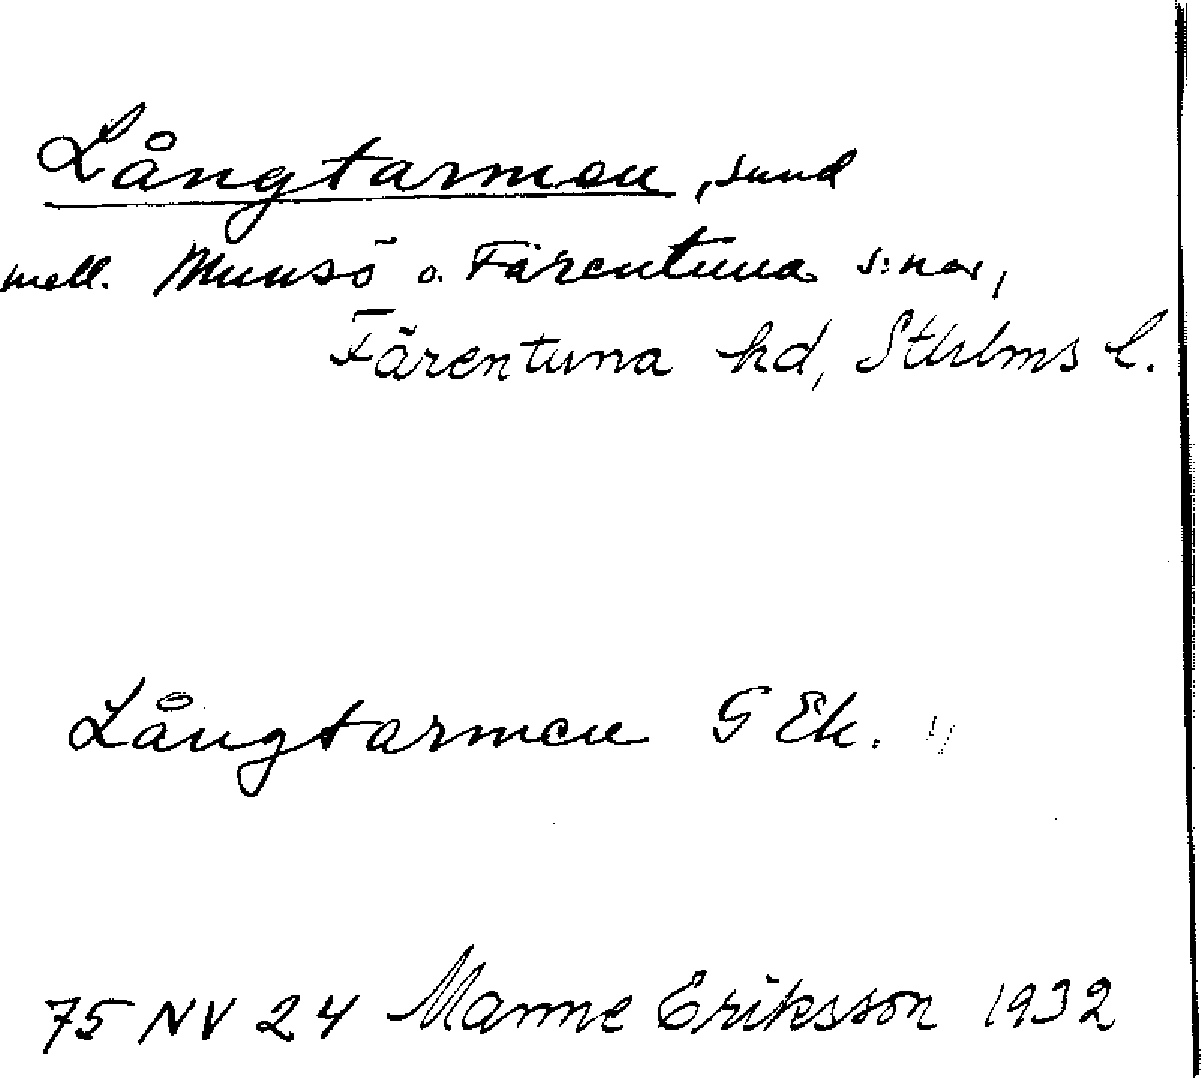 Långtarmen, sund
mell. Munsö o. Färentuna s:nar,
Färentuna hd, Sthlms l.
Långtarmen G Ek.
75 NV 24 Manne Eriksson 1932